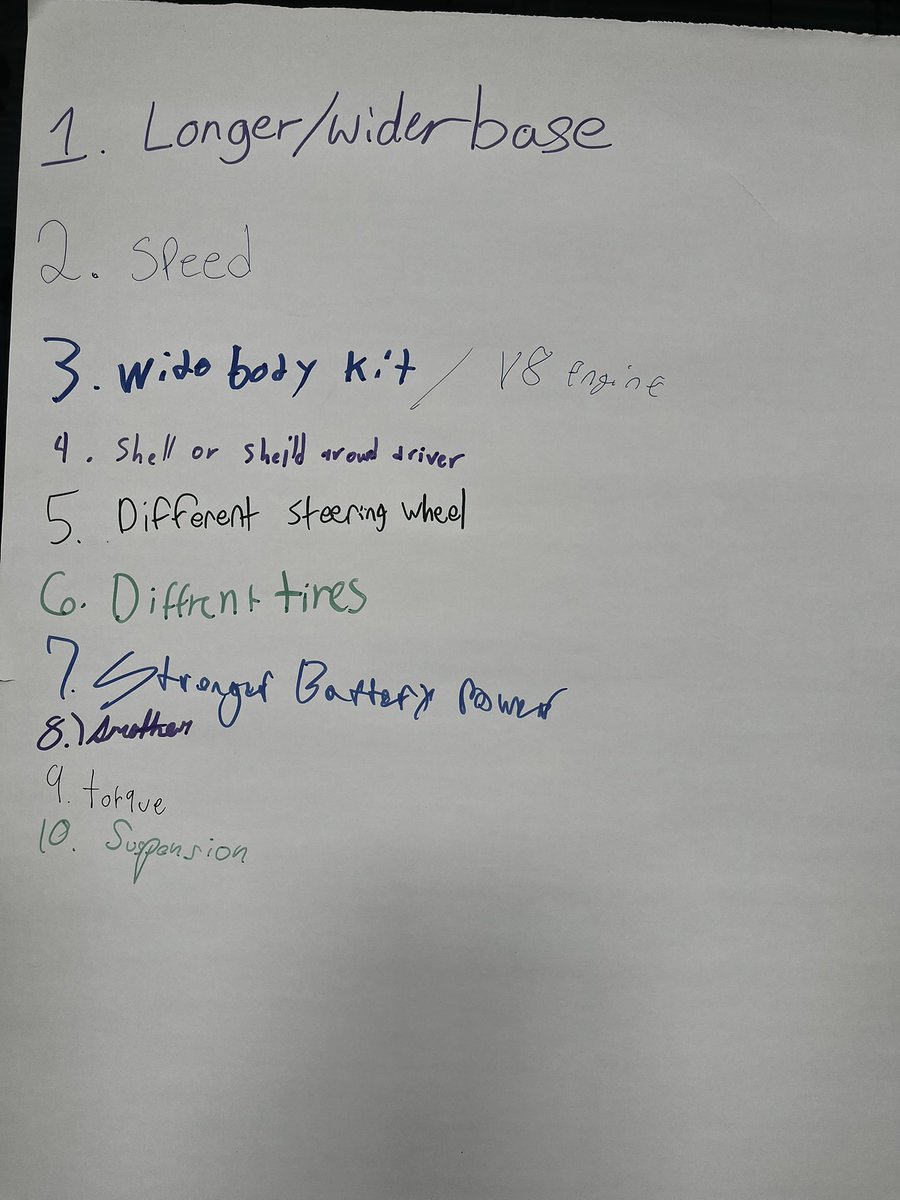 1. Longer/wider base
2. Speed
3. wide body kit / V8 engine
4. Shell or sheild around driver
5. Different steering wheel
6. Diffrent tires
7. Stronger Battery Power
8.)
9. torque
10. Suspension